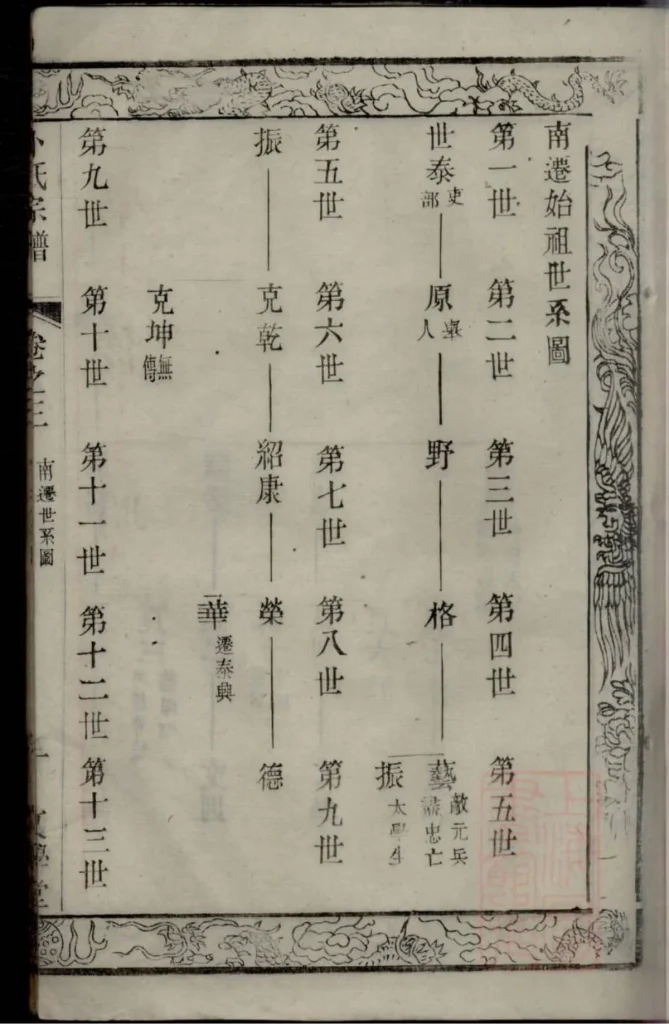 南遷始祖世系圖
第一世 第二世 第三世 第四世 第五世
世泰吏部 原舉人 野 格 藝敵元兵 忠亡
振太學生
第五世 第六世 第七世 第八世 第九世
振 克乾 紹康 榮 德
華遷泰興
克坤無傳
第九世 第十世 第十一世 第十二世 第十三世
卜氏宗譜 卷之三 南遷世系圖 一